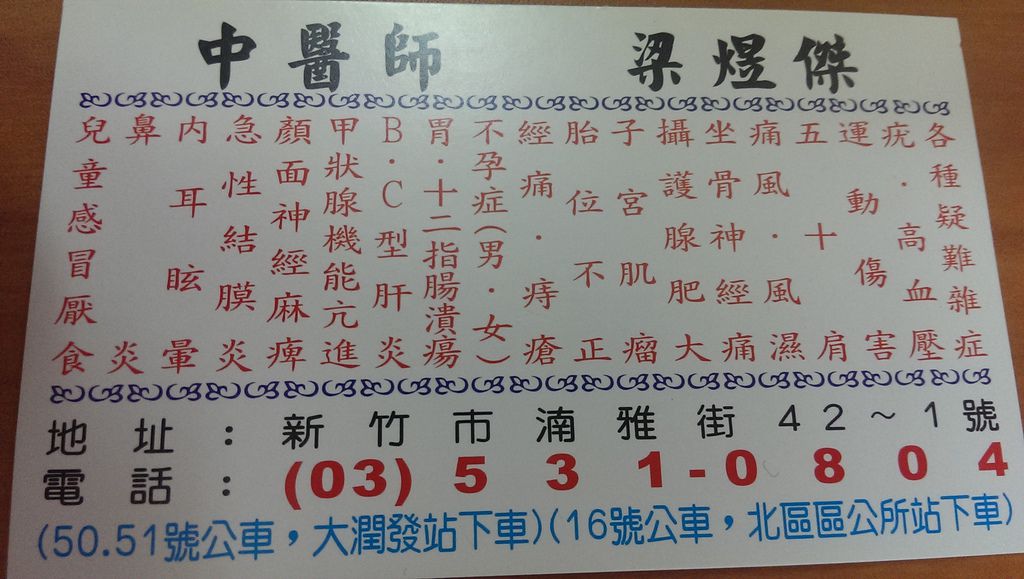 中醫師 梁煜傑
各種疑難雜症
疣·高血壓
運動傷害
五十肩
痛風·風濕
坐骨神經痛
攝護腺肥大
子宮肌瘤
胎位不正
經痛·痔瘡
不孕症(男·女)
胃·十二指腸潰瘍
B·C型肝炎
甲狀腺機能亢進
顏面神經麻痺
急性結膜炎
內耳眩暈
鼻炎
兒童感冒厭食
地址：新竹市湳雅街42~1號
電話：(03)531-0804
(50.51號公車，大潤發站下車)(16號公車，北區區公所站下車)